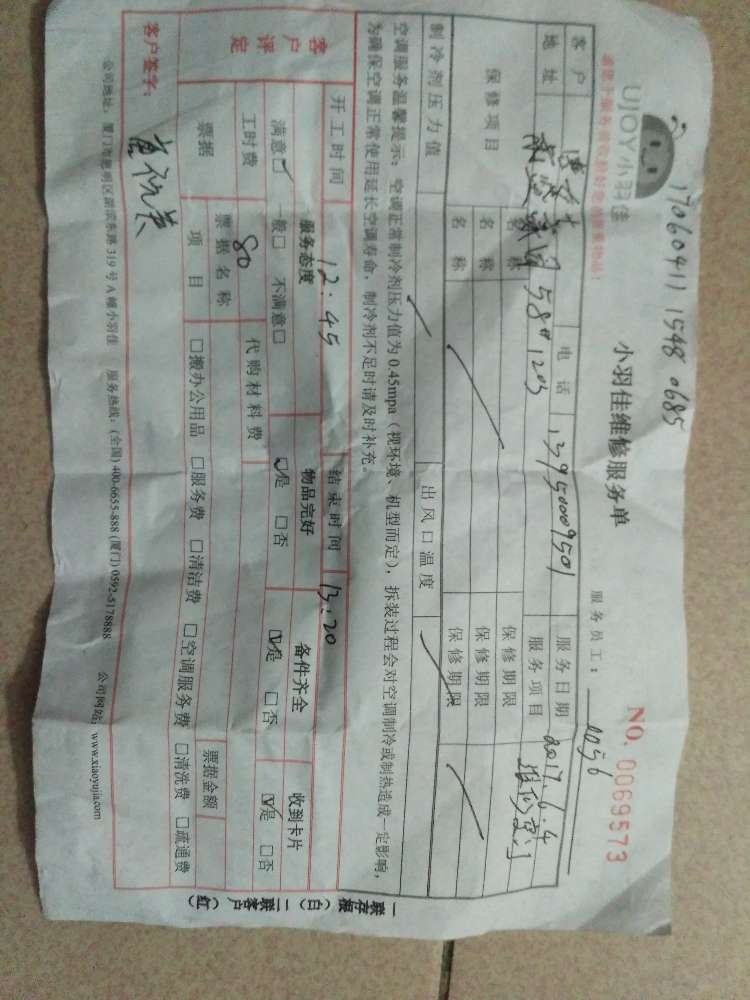 17060411 1548 0685
UJOY小羽佳
小羽佳维修服务单
NO. 0069573
服务员工: 0056
客户
电话 13950009501
服务日期 2017.6.4
地址 58# 1203
服务项目
保修项目
名称
保修期限
名称
保修期限
名称
保修期限
制冷剂压力值
出风口温度
空调服务温馨提示: 空调正常制冷剂压力值为 0.45mpa (视环境、机型而定), 拆装过程会对空调制冷或制热造成一定影响,
为确保空调正常使用延长空调寿命, 制冷剂不足时请及时补充。
开工时间 12:45 结束时间 13:20
客户评定
服务态度 物品完好 备件齐全 收到卡片
满意□ 一般□ 不满意□ □是 □否 □是 □否 □是 □否
工时费 80 代购材料费
票据 票据名称 票据金额
项目 □搬办公用品 □服务费 □清洁费 □空调服务费 □清洗费 □疏通费
客户签字:
公司地址: 厦门市思明区湖滨东路 319 号 A 幢小羽佳 服务热线: (全国) 400-6655-888 (厦门) 0592-5178888 公司网站: www.xiaoyujia.com
一联存根 (白) 二联客户 (红)